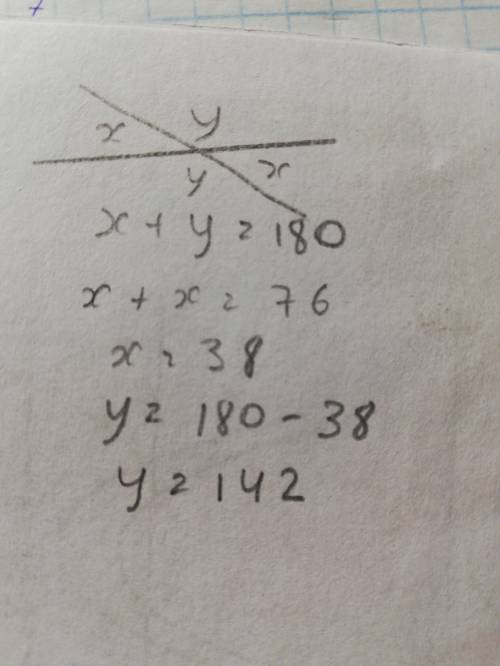 x y
y x
x + y = 180
x + x = 76
x = 38
y = 180 - 38
y = 142